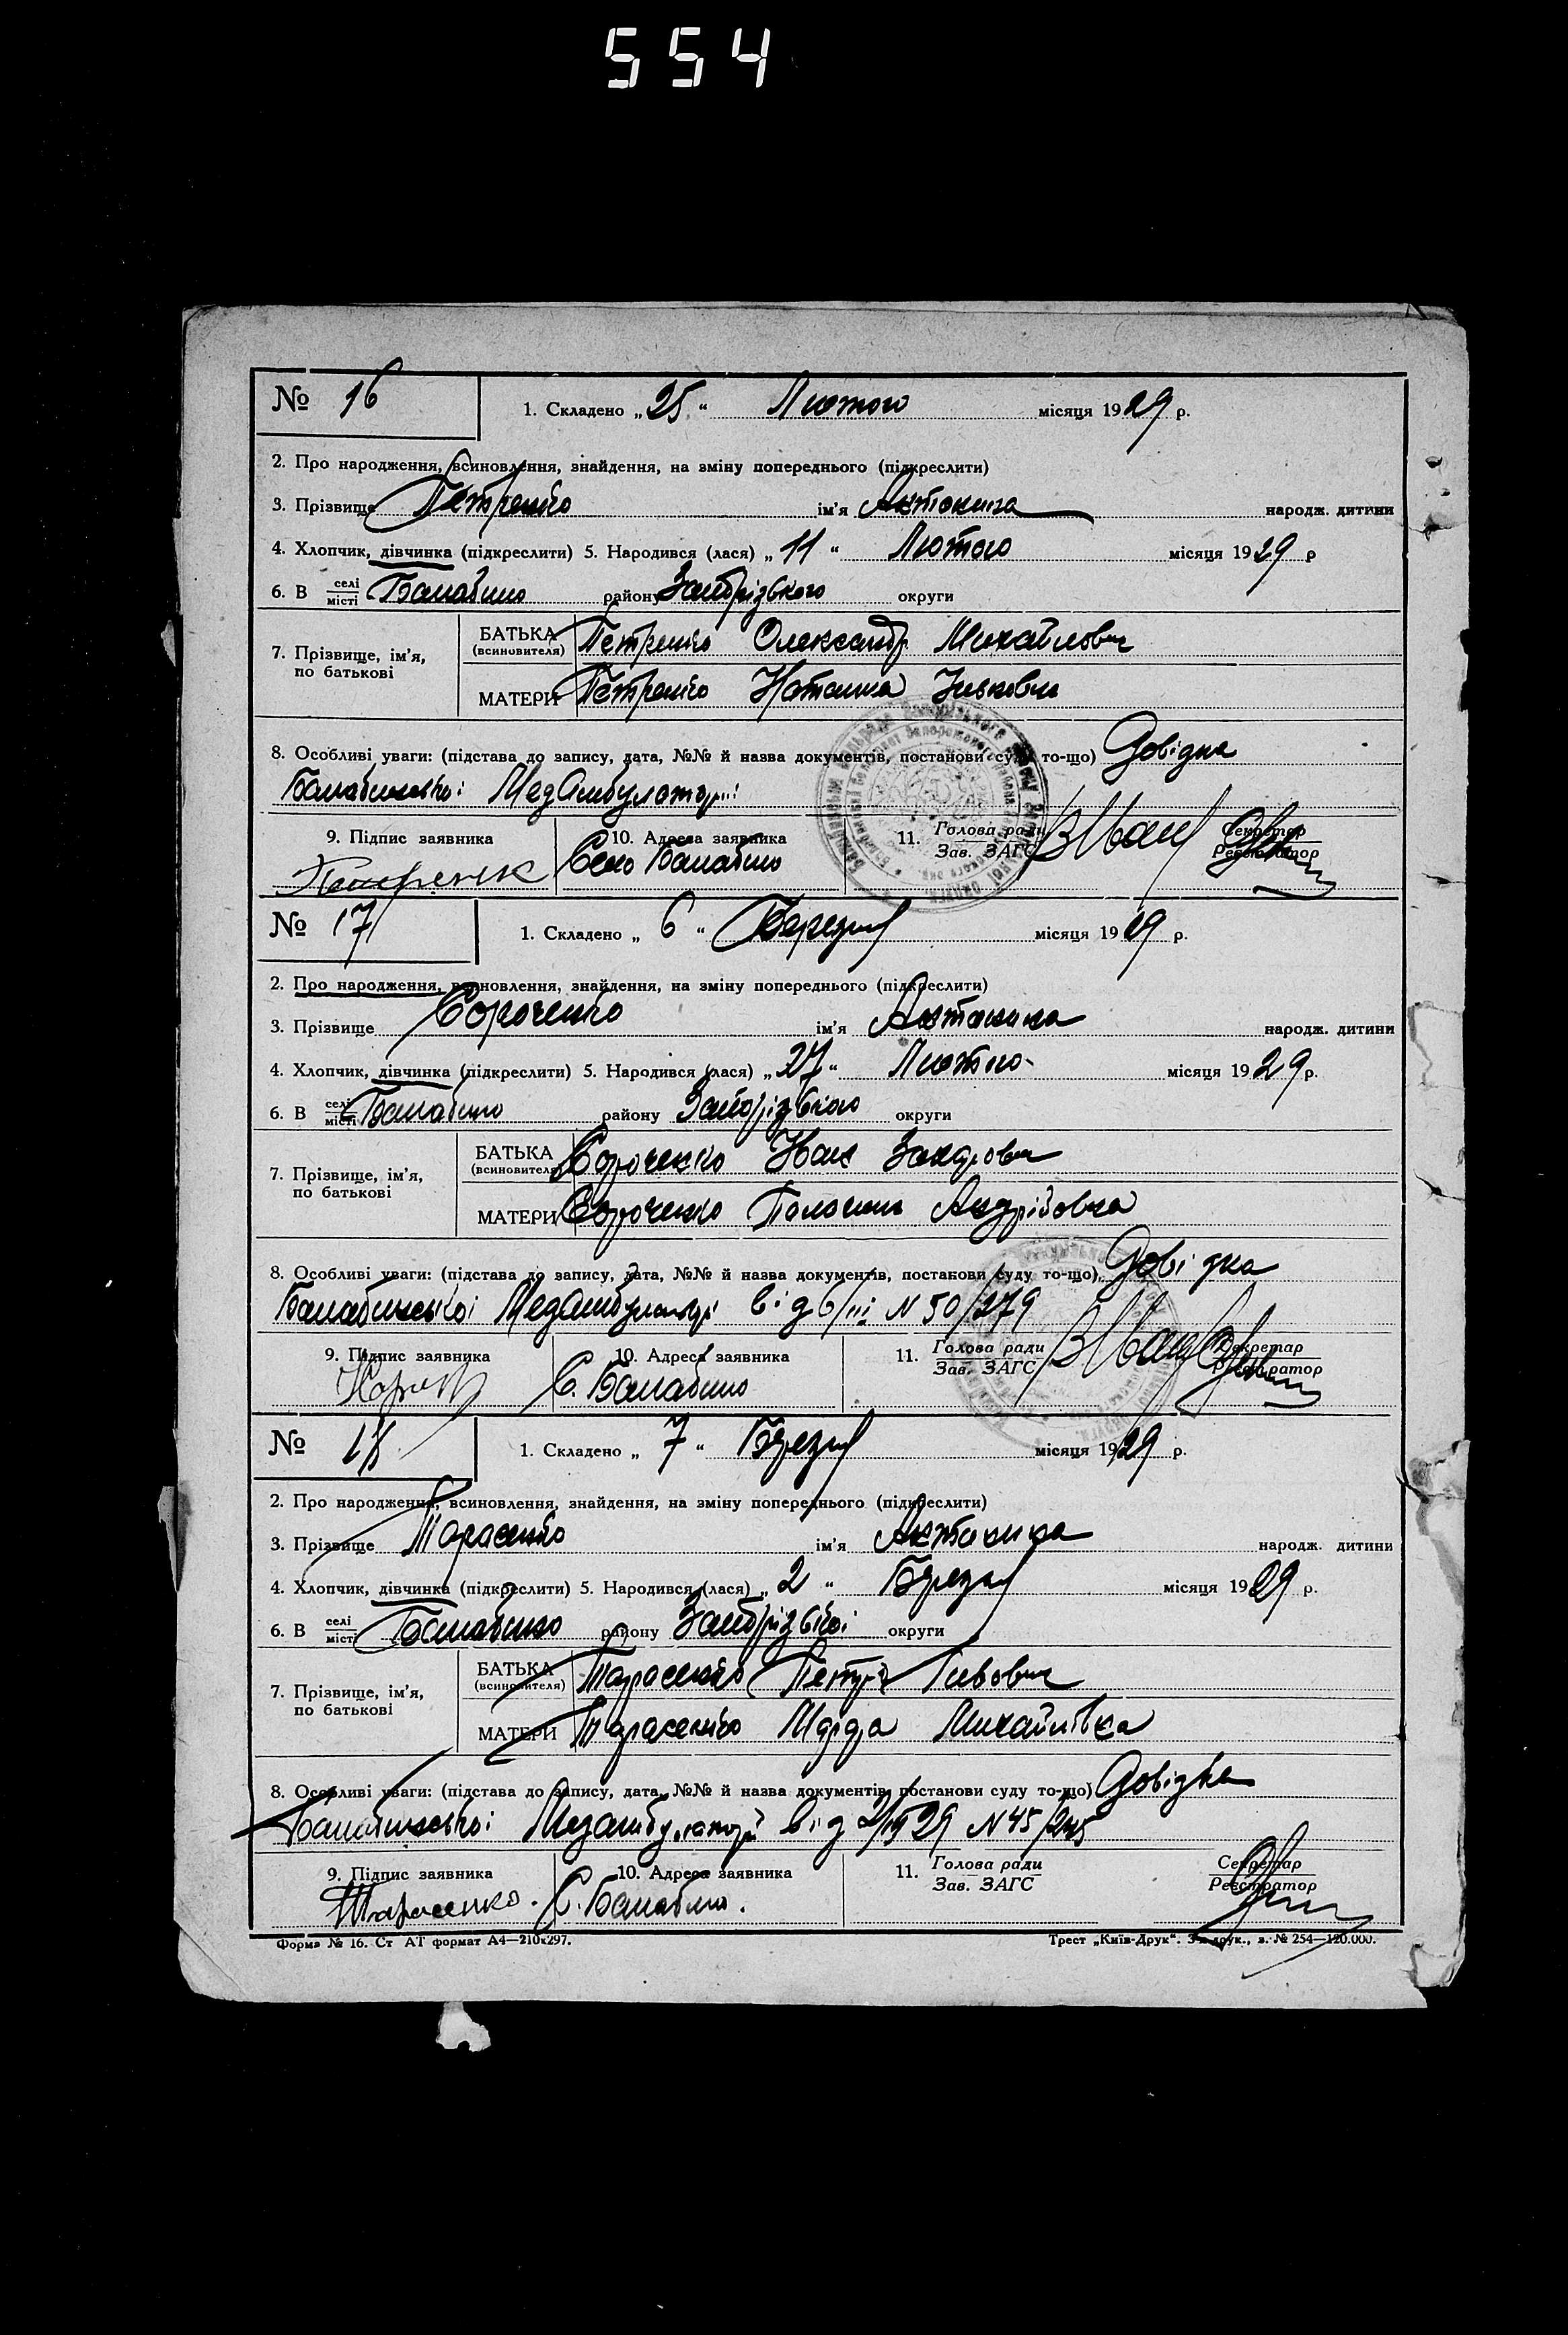 554
№ 16 1. Складено „25“ Лютого місяця 1929 р.
2. Про народження, всиновлення, знайдення, на зміну попереднього (підкреслити)
3. Прізвище Петренко ім'я Антонина народж. дитини
4. Хлопчик, дівчинка (підкреслити) 5. Народився (лася) „11“ Лютого місяця 1929 р
6. В селі місті Балабино району Запорізького округи
7. Прізвище, ім'я, по батькові
БАТЬКА (всиновителя) Петренко Олександр Михайлович
МАТЕРИ Петренко Наталка
8. Особливі уваги: (підстава до запису, дата, №№ й назва документів, постанови суду то-що) Довідка
Балабинської МедАмбулаторії
9. Підпис заявника 10. Адреса заявника 11. Голова ради Зав. ЗАГС Секретар Реєстратор
Петренк Село Балабино
№ 17 1. Складено „ 6 “ Березня місяця 1929 р.
2. Про народження, всиновлення, знайдення, на зміну попереднього (підкреслити)
3. Прізвище Сороченко ім'я Антонина народж. дитини
4. Хлопчик, дівчинка (підкреслити) 5. Народився (лася) „27“ Лютого місяця 1929 р.
6. В селі місті Балабино району Запорізького округи
7. Прізвище, ім'я, по батькові
БАТЬКА (всиновителя) Сороченко Іван Захарович
МАТЕРИ Сороченко Андріївна
8. Особливі уваги: (підстава до запису, дата, №№ й назва документів, постанови суду то-що) Довідка
Балабинської МедАмбулаторії від 6/III N 50/279
9. Підпис заявника 10. Адреса заявника 11. Голова ради Зав. ЗАГС Секретар Реєстратор
С. Балабино
№ 18 1. Складено „ 7 “ Березня місяця 1929 р.
2. Про народження, всиновлення, знайдення, на зміну попереднього (підкреслити)
3. Прізвище Тарасенко ім'я Антонина народж. дитини
4. Хлопчик, дівчинка (підкреслити) 5. Народився (лася) „ 2 “ Березня місяця 1929 р.
6. В селі місті Балабино району Запорізької округи
7. Прізвище, ім'я, по батькові
БАТЬКА (всиновителя) Тарасенко Петро
МАТЕРИ Тарасенко Марфа Михайлівка
8. Особливі уваги: (підстава до запису, дата, №№ й назва документів, постанови суду то-що) Довідка
Балабинської Медамбулаторії від N 45/245
9. Підпис заявника 10. Адреса заявника 11. Голова ради Зав. ЗАГС Секретар Реєстратор
Тарасенко. С. Балабино.
Форма № 16. Ст АТ формат А4—210х297. Трест „Київ-Друк“. 3-я друк., з. № 254—120.000.